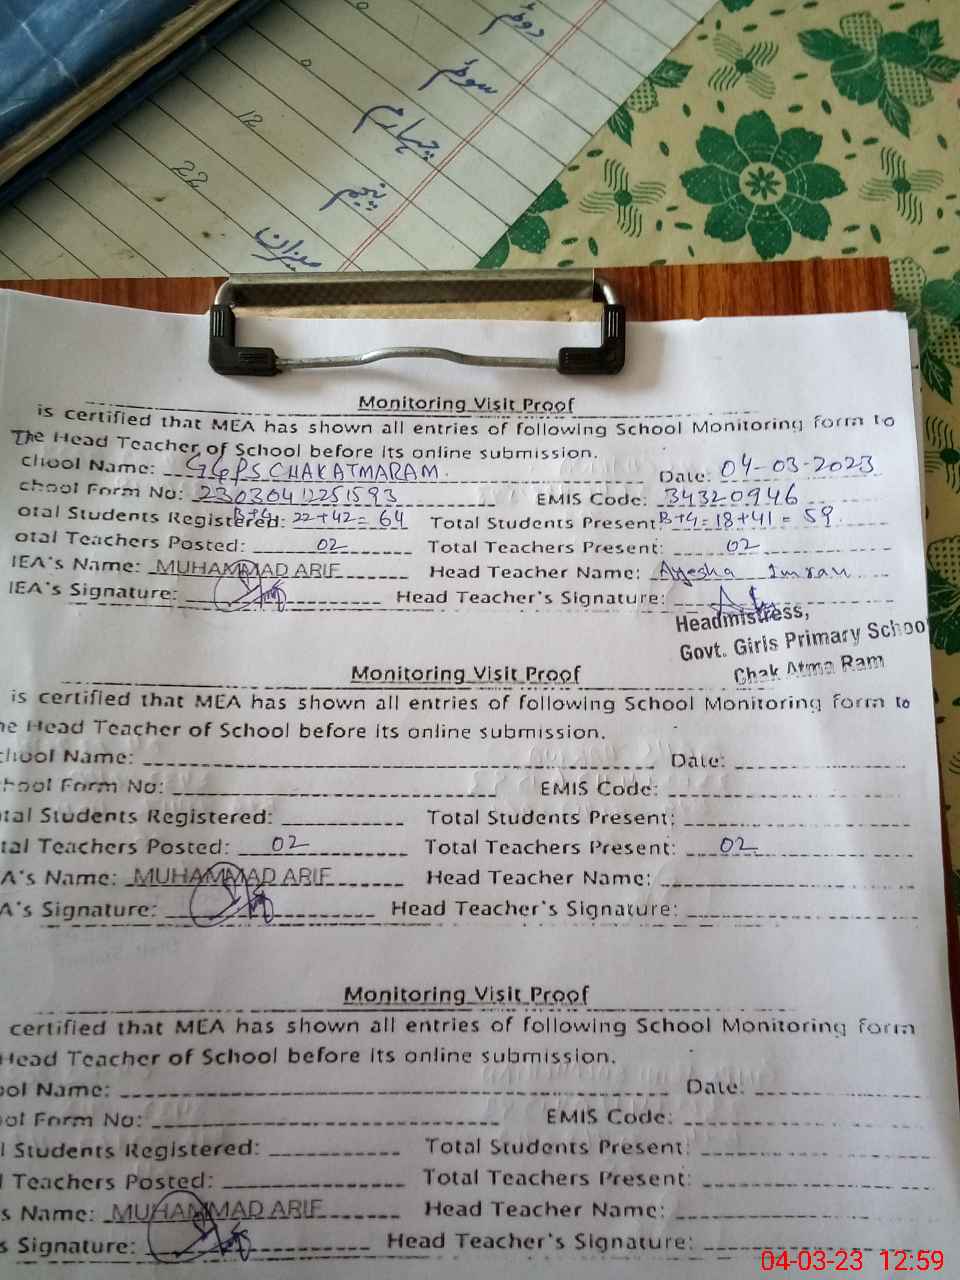 دوئم
0
سوئم
0
چہارم
12
پنجم
22
میزان
Monitoring Visit Proof
is certified that MEA has shown all entries of following School Monitoring form to
The Head Teacher of School before its online submission.
chool Name: GGPS CHAK ATMARAM. Date: 04-03-2023
chool Form No: EMIS Code: 34320946
otal Students Registered: B+G 22+42= 64 Total Students Present B+G= 18+41 = 59
otal Teachers Posted: 02 Total Teachers Present: 02
IEA's Name: MUHAMMAD ARIF Head Teacher Name: Ayesha Imran
IEA's Signature: Head Teacher's Signature:
Headmistress,
Govt. Girls Primary Schoo
Chak Atma Ram
Monitoring Visit Proof
is certified that MEA has shown all entries of following School Monitoring form to
he Head Teacher of School before its online submission.
chool Name: Date:
hool Form No: EMIS Code:
tal Students Registered: Total Students Present:
tal Teachers Posted: 02 Total Teachers Present: 02
A's Name: MUHAMMAD ARIF Head Teacher Name:
A's Signature: Head Teacher's Signature:
Monitoring Visit Proof
certified that MEA has shown all entries of following School Monitoring form
Head Teacher of School before its online submission.
ool Name: Date:
ol Form No: EMIS Code:
l Students Registered: Total Students Present:
l Teachers Posted: Total Teachers Present:
s Name: MUHAMMAD ARIF Head Teacher Name:
s Signature: Head Teacher's Signature:
04-03-23 12:59